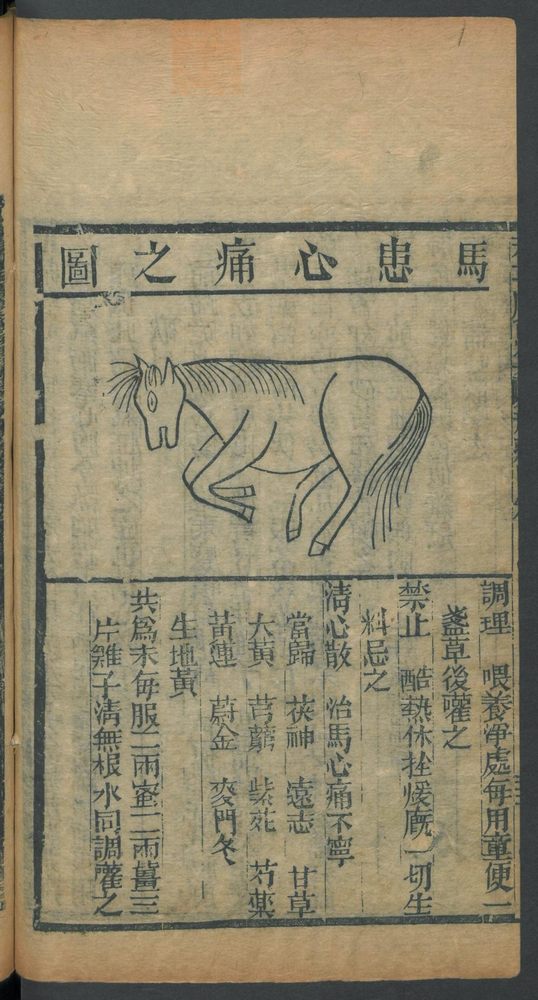 馬患心痛之圖
調理 喂養淨處每用童便一
盞草後嚾之
禁止 酷熱休拴煖廐一切生
料忌之
清心散 治馬心痛不寧
當歸 茯神 遠志 甘草
大黃 芎藭 紫苑 芍藥
黃連 蔚金 麥門冬
生地黃
共爲末每服二兩蜜二兩薑三
片雞子清無根水同調嚾之